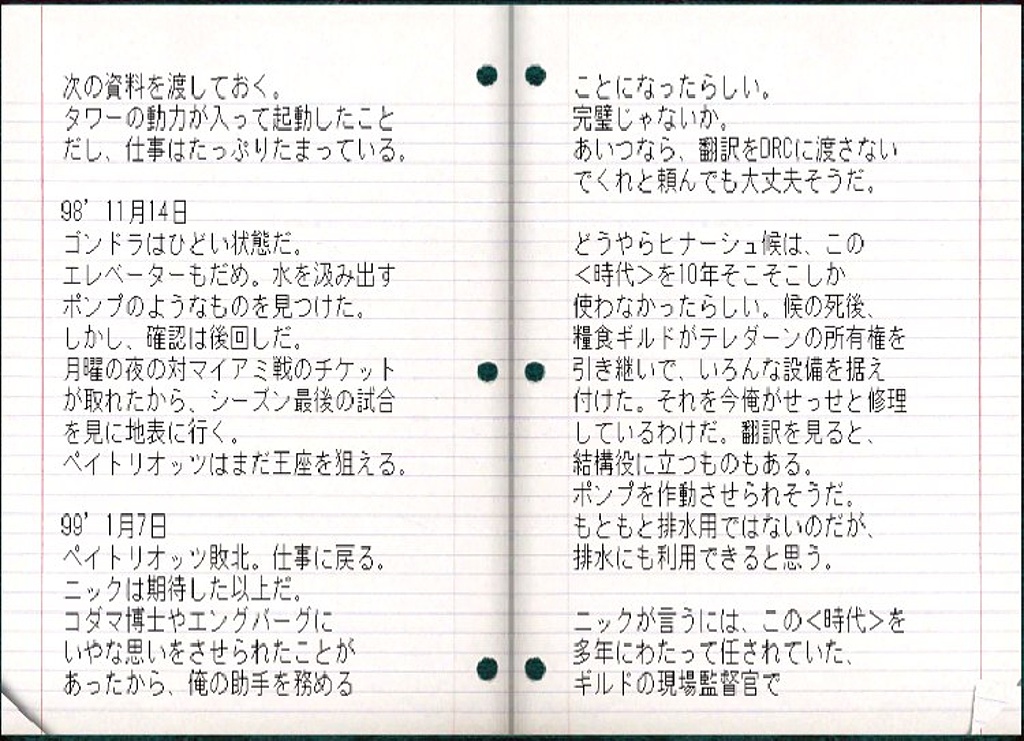 次の資料を渡しておく。
タワーの動力が入って起動したこと
だし、仕事はたっぷりたまっている。
98’ 11月14日
ゴンドラはひどい状態だ。
エレベーターもだめ。水を汲み出す
ポンプのようなものを見つけた。
しかし、確認は後回しだ。
月曜の夜の対マイアミ戦のチケット
が取れたから、シーズン最後の試合
を見に地表に行く。
ペイトリオッツはまだ王座を狙える。
99’ 1月7日
ペイトリオッツ敗北。仕事に戻る。
ニックは期待した以上だ。
コダマ博士やエングバーグに
いやな思いをさせられたことが
あったから、俺の助手を務める
ことになったらしい。
完璧じゃないか。
あいつなら、翻訳をDRCに渡さない
でくれと頼んでも大丈夫そうだ。
どうやらヒナーシュ候は、この
<時代>を10年そこそこしか
使わなかったらしい。候の死後、
糧食ギルドがテレダーンの所有権を
引き継いで、いろんな設備を据え
付けた。それを今俺がせっせと修理
しているわけだ。翻訳を見ると、
結構役に立つものもある。
ポンプを作動させられそうだ。
もともと排水用ではないのだが、
排水にも利用できると思う。
ニックが言うには、この<時代>を
多年にわたって任されていた、
ギルドの現場監督官で